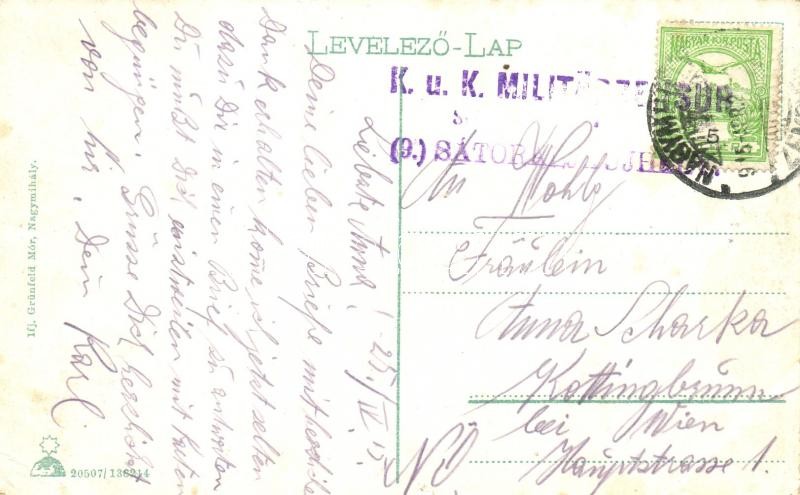 LEVELEZŐ-LAP
MAGYAR KIR. POSTA
K. u. K. MILIT
SUR
(9.) SÁTORA UJHE
NAGYMIH
An Wohlg
Fräulein
Anna Scharka
Kottingbrunn
bei Wien
Hauptstrasse 1.
NÖ
25./IV 15
Liebste Anna!
Deine lieben Briefe mit herzliche
Dank erhalten kome ich jetzt selten
dazu Dir in einen Brief zu antworten
Du mußt Dich einstweilen mit Karten
begnügen. Grüsse Dich herzlichst
von mir, Dein Karl.
Ifj. Grünfeld Mór, Nagymihály.
20507/136214